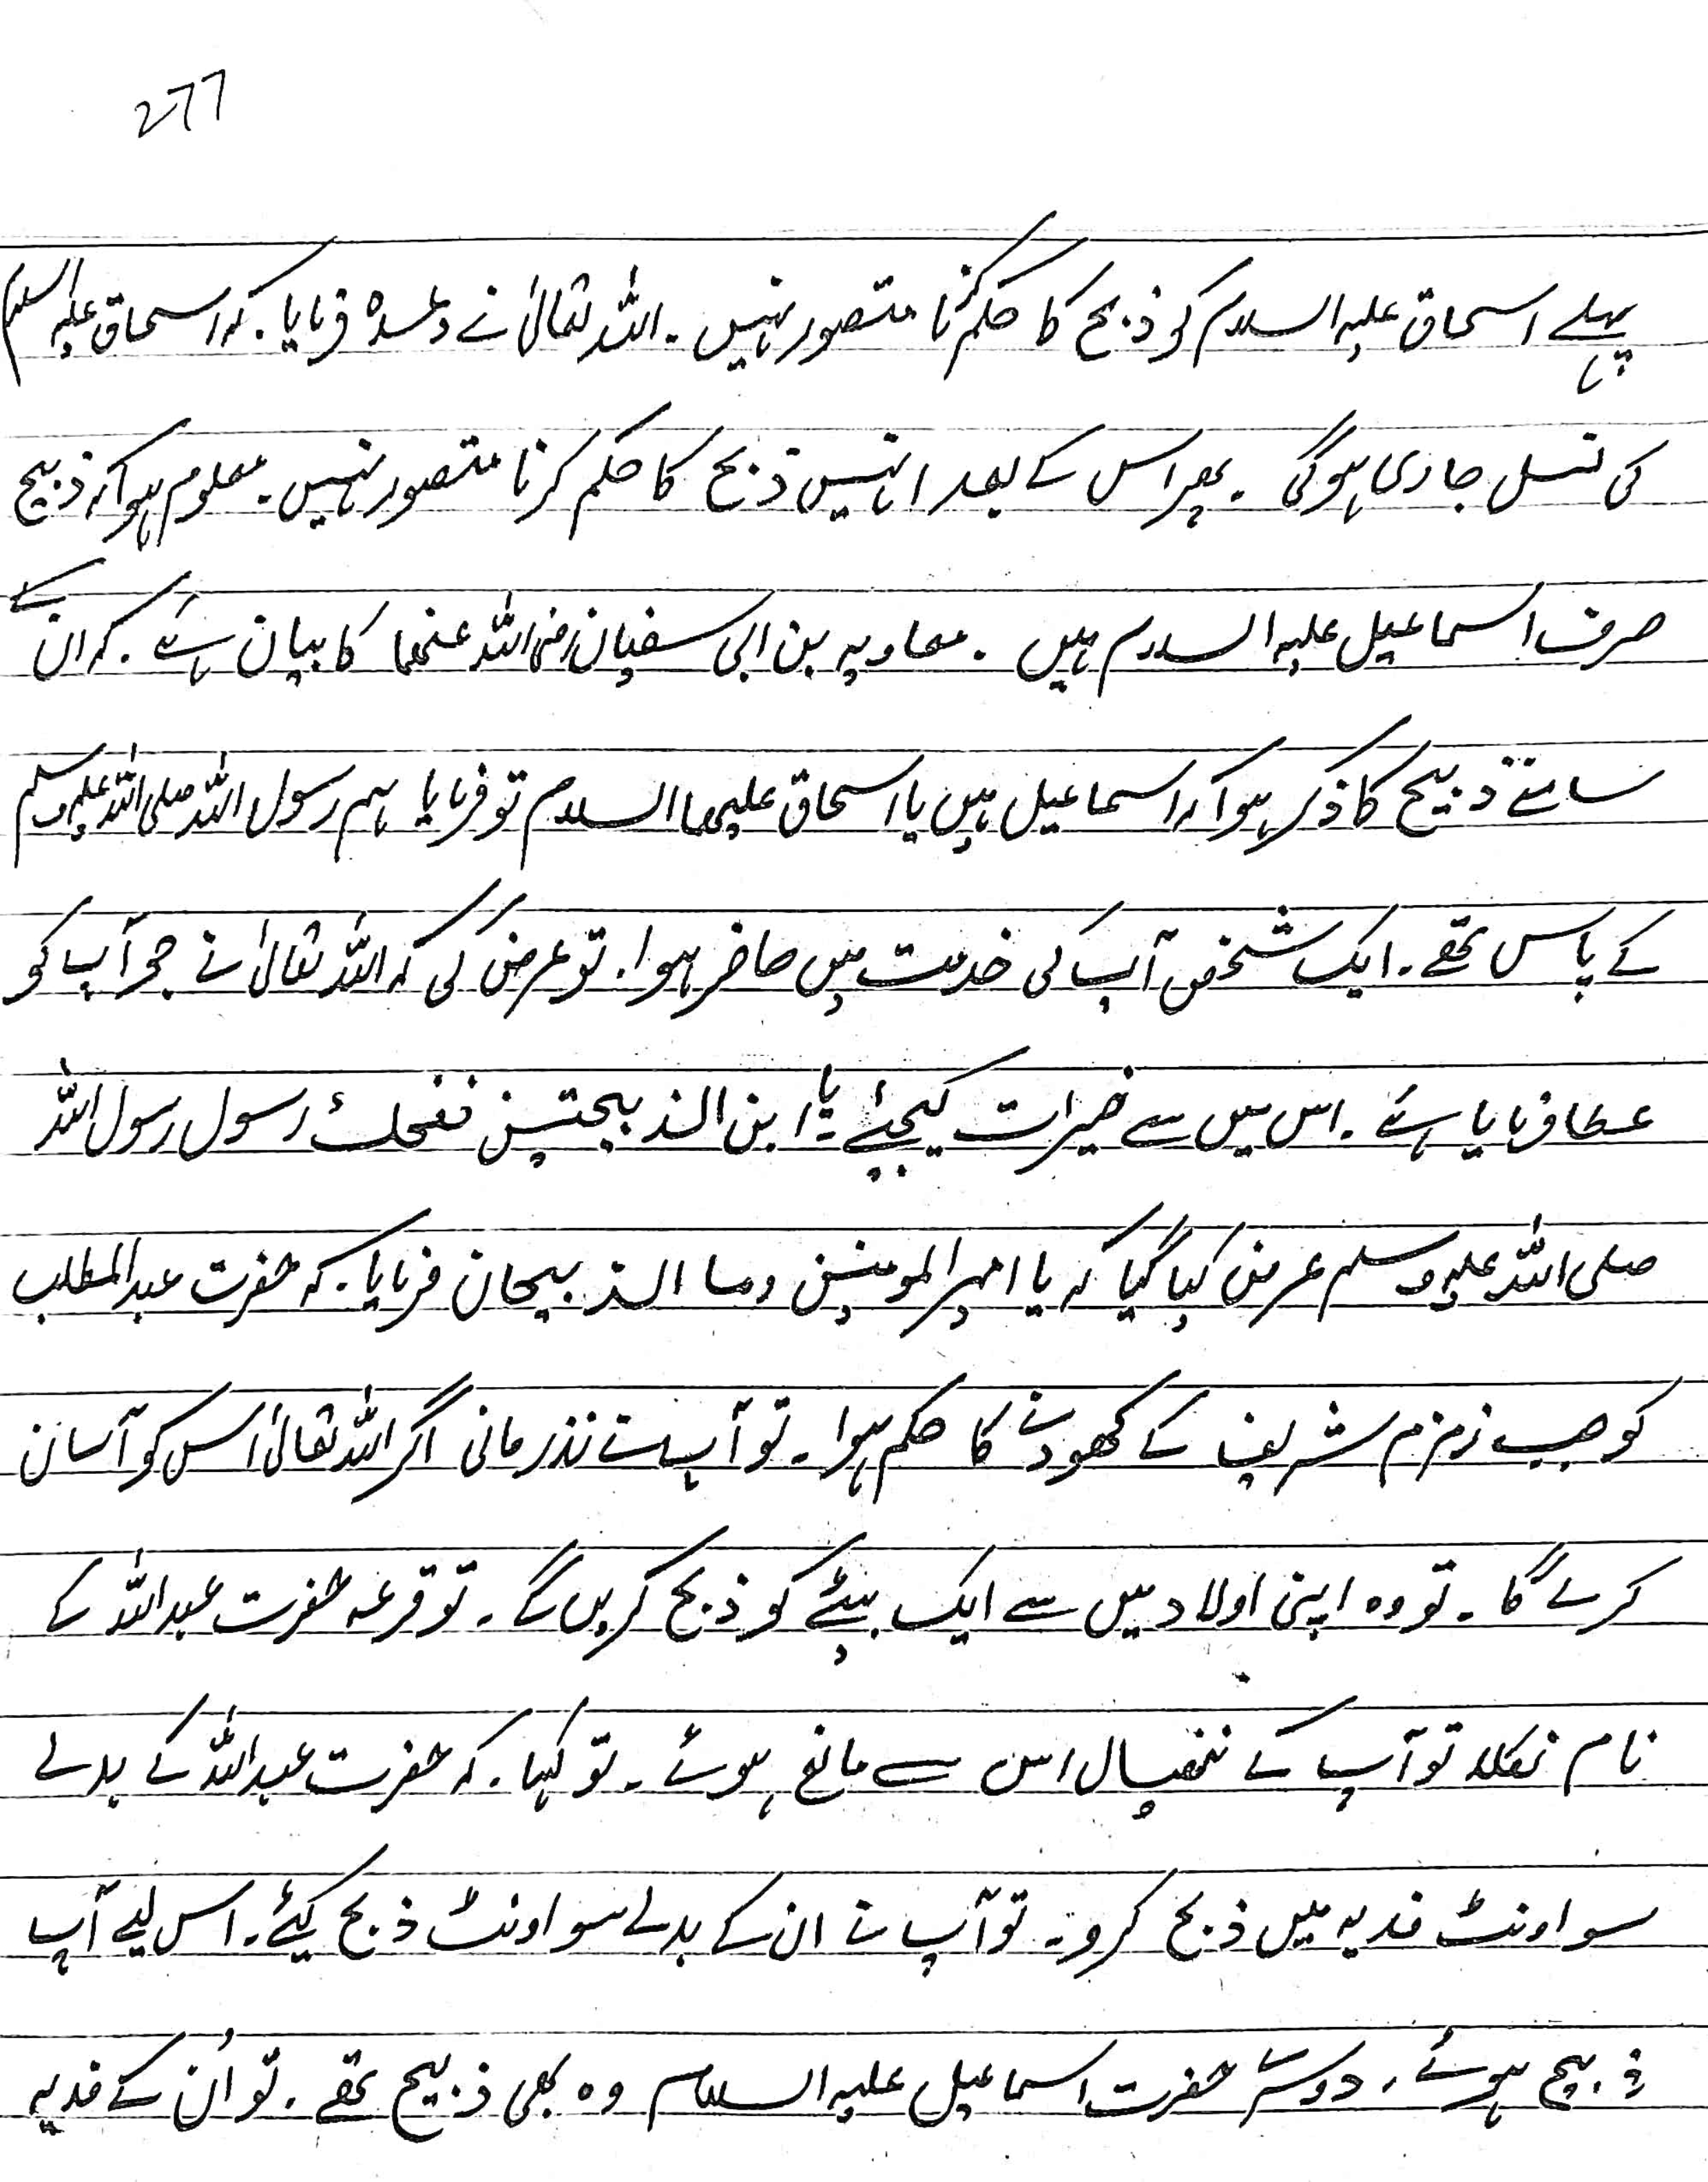 277
پہلے اسحاق علیہ السلام کو ذبح کا حکم کرنا متصور نہیں۔ اللہ تعالیٰ نے وعدہ فرمایا۔ کہ اسحاق علیہ السلام
کی نسل جاری ہوگی ۔ پھر اس کے بعد انہیں ذبح کا حکم کرنا متصور نہیں۔ معلوم ہوا کہ ذبیح
صرف اسماعیل علیہ السلام ہیں ۔ معاویہ بن ابی سفیان رضی اللہ عنھما کا بیان ہے ۔ کہ ان کے
سامنے ذبیح کا ذکر ہوا کہ اسماعیل ہیں یا اسحاق علیہما السلام تو فرمایا ہم رسول اللہ صلی اللہ علیہ وسلم
کے پاس تھے ۔ ایک شخص آپ کی خدمت میں حاضر ہوا۔ تو عرض کی کہ اللہ تعالیٰ نے جو آپ کو
عطا فرمایا ہے ۔ اس میں سے خیرات کیجئے یا ابن الذبیحتین فضحک رسول رسول اللہ
صلی اللہ علیہ وسلم عرض کیا گیا کہ یا امیر المومنین وما الذبیحان فرمایا ۔ کہ حضرت عبد المطلب
کو جب زمزم شریف کے کھودنے کا حکم ہوا ۔ تو آپ نے نذر مانی اگر اللہ تعالیٰ اس کو آسان
کرے گا ۔ تو وہ اپنی اولاد میں سے ایک بیٹے کو ذبح کریں گے ۔ تو قرعہ حضرت عبد اللہ کے
نام نکلا تو آپ کے ننھیال اس سے مانع ہوئے ۔ تو کہا ۔ کہ حضرت عبد اللہ کے بدلے
سو اونٹ فدیہ میں ذبح کرو ۔ تو آپ نے ان کے بدلے سو اونٹ ذبح کیئے ۔ اس لیے آپ
ذبیح ہوئے ، دوسرے حضرت اسماعیل علیہ السلام وہ بھی ذبیح تھے ۔ تو اُن کے فدیہ